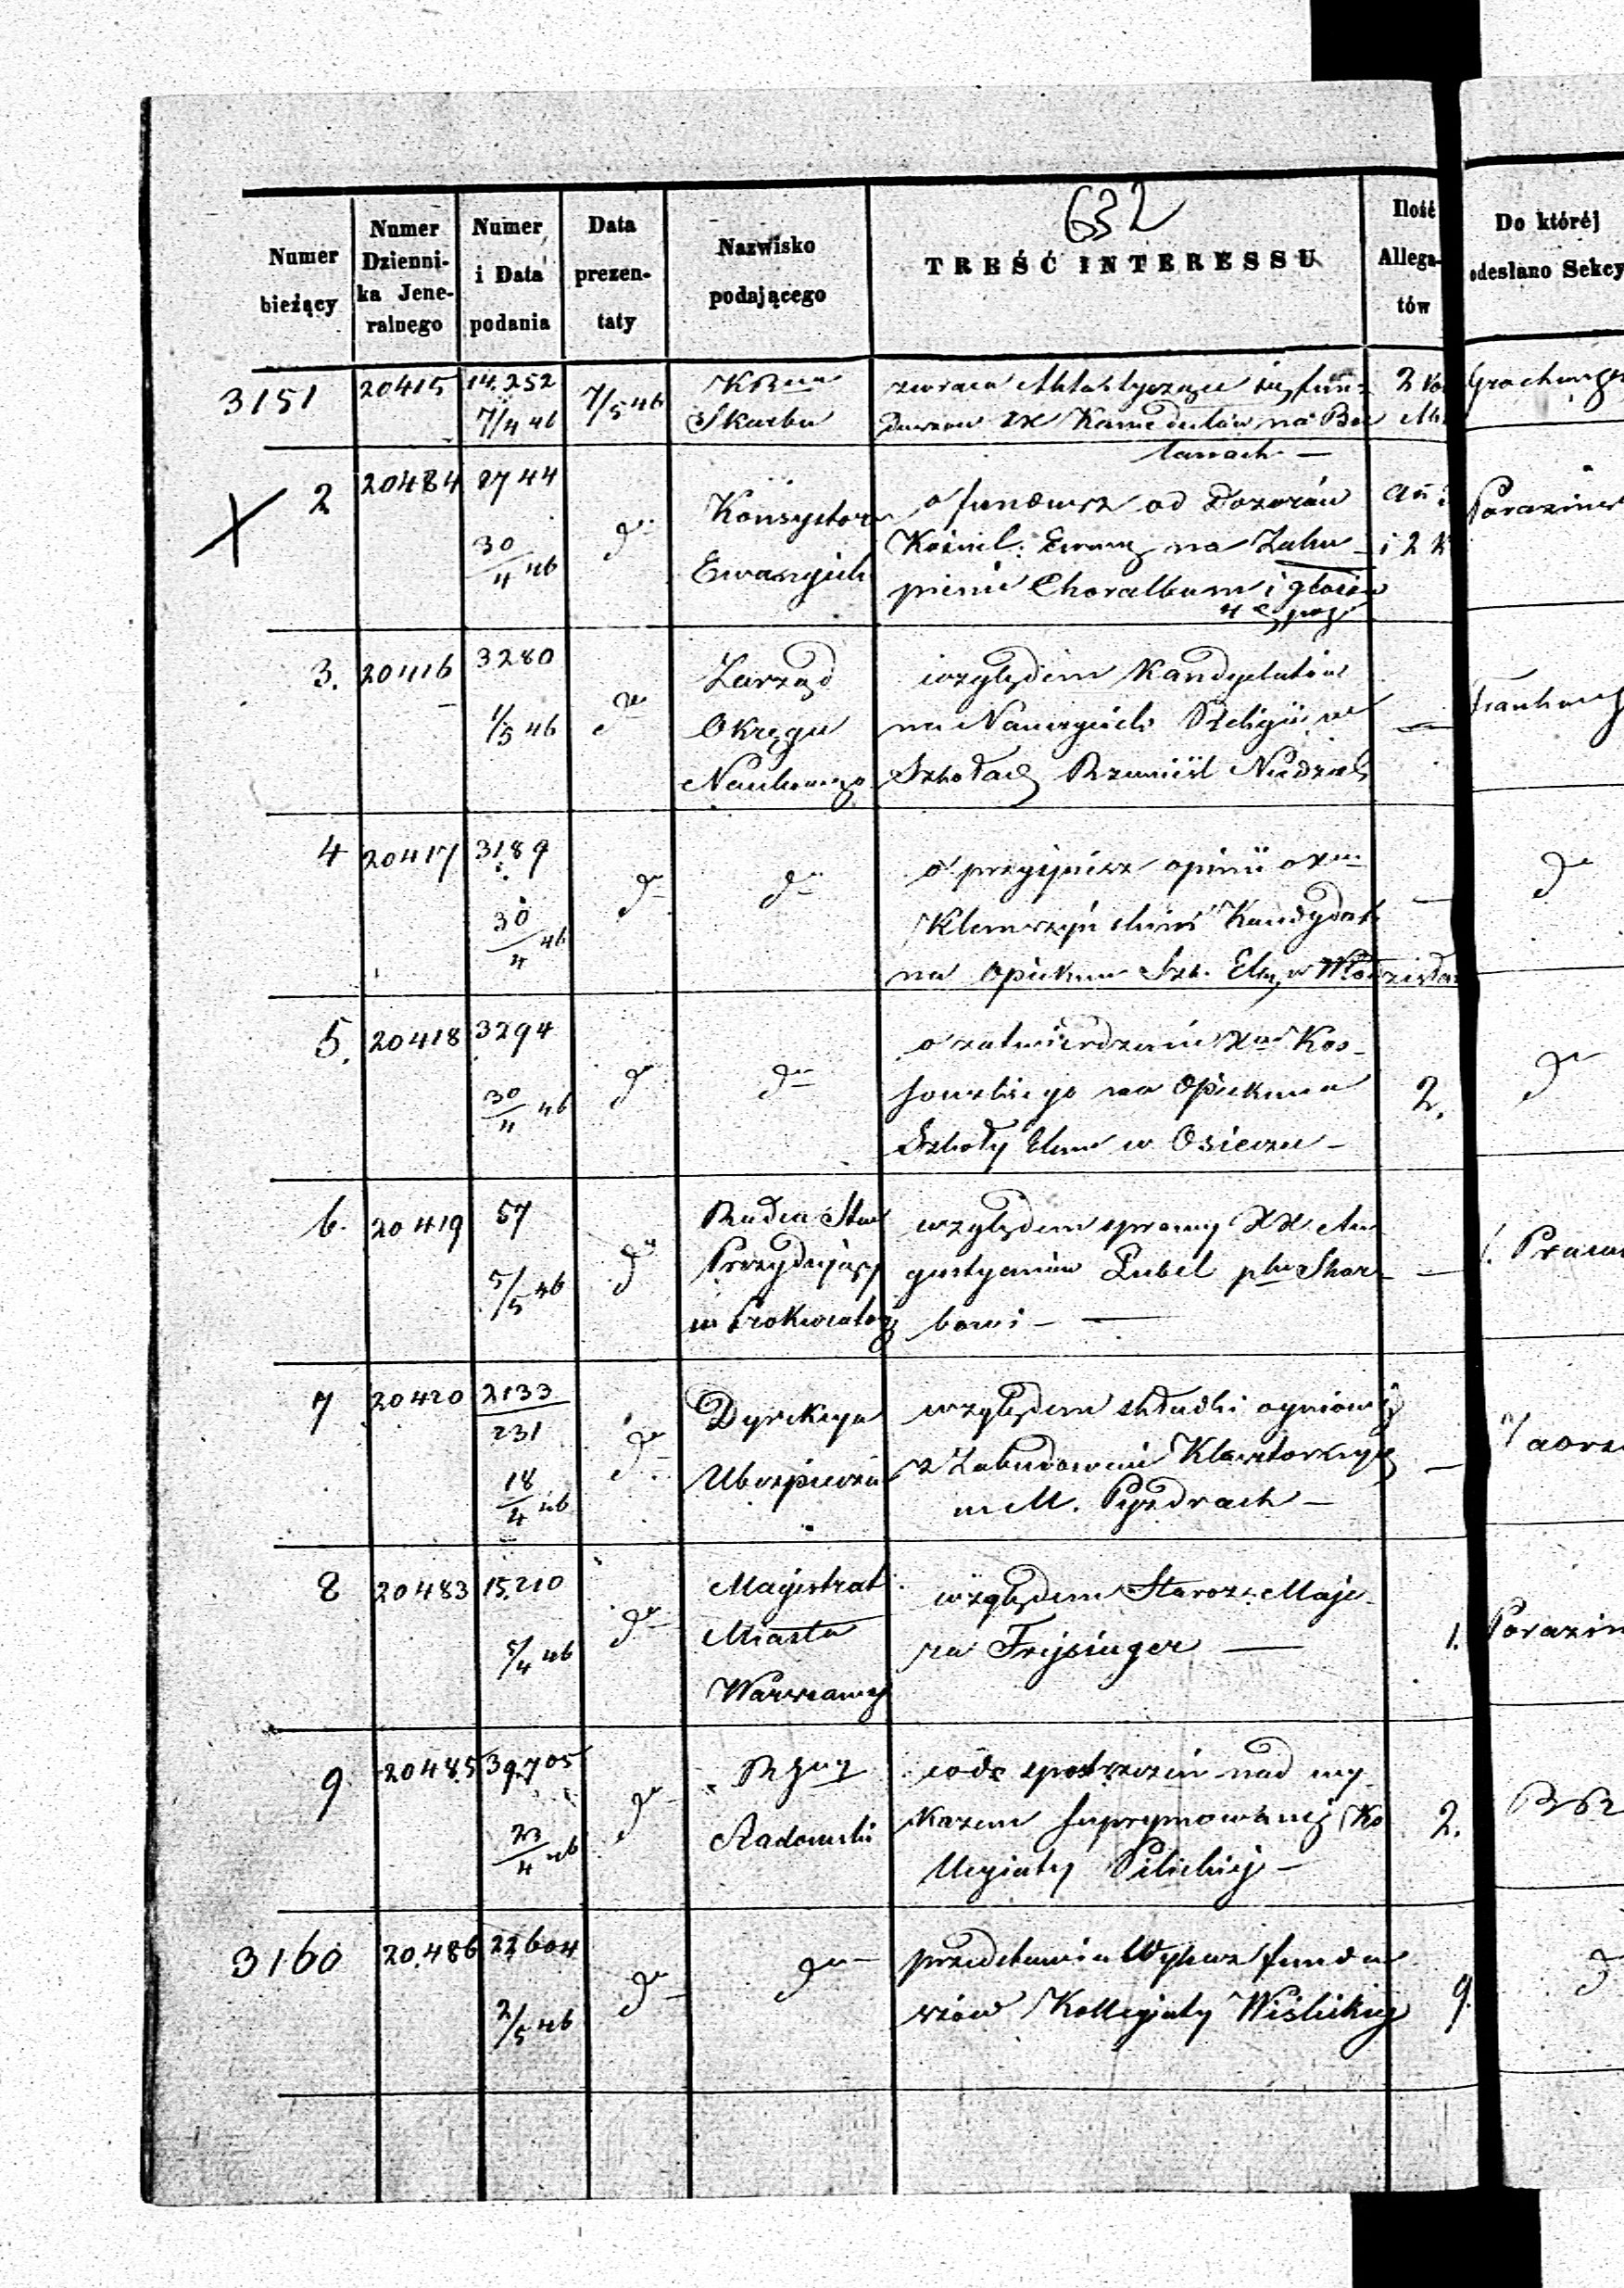 632
Numer bieżący
Numer Dzienni-
ka Jene-
ralnego
Numer i Data podania
Data prezen-
taty
Nazwisko podającego
TREŚĆ INTERESSU
Ilość Allega-
tów
Do któréj
odesłano Sekcy
3151 20415 14.252 7/4 46 7/5 46
Skarbu
zwraca Akta tyczące się fun-
duszów XX Kamedułów na Bie
lanach —
2
2 20484 8744 30/4 46 dto
Konsystorz
Ewangieli
o fundusz od Dozorów
Kościel. Ewang na Zaku
pienie Choralbum i głosów
4
i 2
3. 20416 3280 1/5 46 dto
Zarząd
Okręgu
Naukowego
względem Kandydatów
na Nauczycieli Religii w
Szkołach Rzemiesl Niedziel
—
4 20417 3189 30/4 46 dto dto
o przyspiesz opinii o
Kandydat
na Opiekuna Szk. Elem w
—
dto
5. 20418 3294 30/4 46 dto dto
o zatwierdzenie Xa Kos-
sowskiego na Opiekuna
Szkoły Elem w Osieczu —
2.
dto
6. 20419 57 5/5 46 dto
Radca Stan
Prezydujący
w Prokuratoryi
względem sprawy XX Au
gustyanów Lubel pko Skar-
bowi — —
—
7 20420 2133
231
18/4 46 dto
Dyrekcya
Ubezpieczeń
względem składki ogniowej
z Zabudowań Klasztornych
w M. Pyzdrach —
—
8 20483 15.210 5/4 46 dto
Magistrat
Miasta
Warszawy
względem Staroz. Maje-
ra Frejsinger —
1.
9 20485 39.705 23/4 46 dto
Radomski
co do spostrzeżeń nad wy
kazem supprymowanej Ko
llegiaty Pilickiej —
2.
3160 20.486 22604 2/5 46 dto dto
przedstawia Wykaz fundu
szów Kollegiaty Wiślickiej
9.